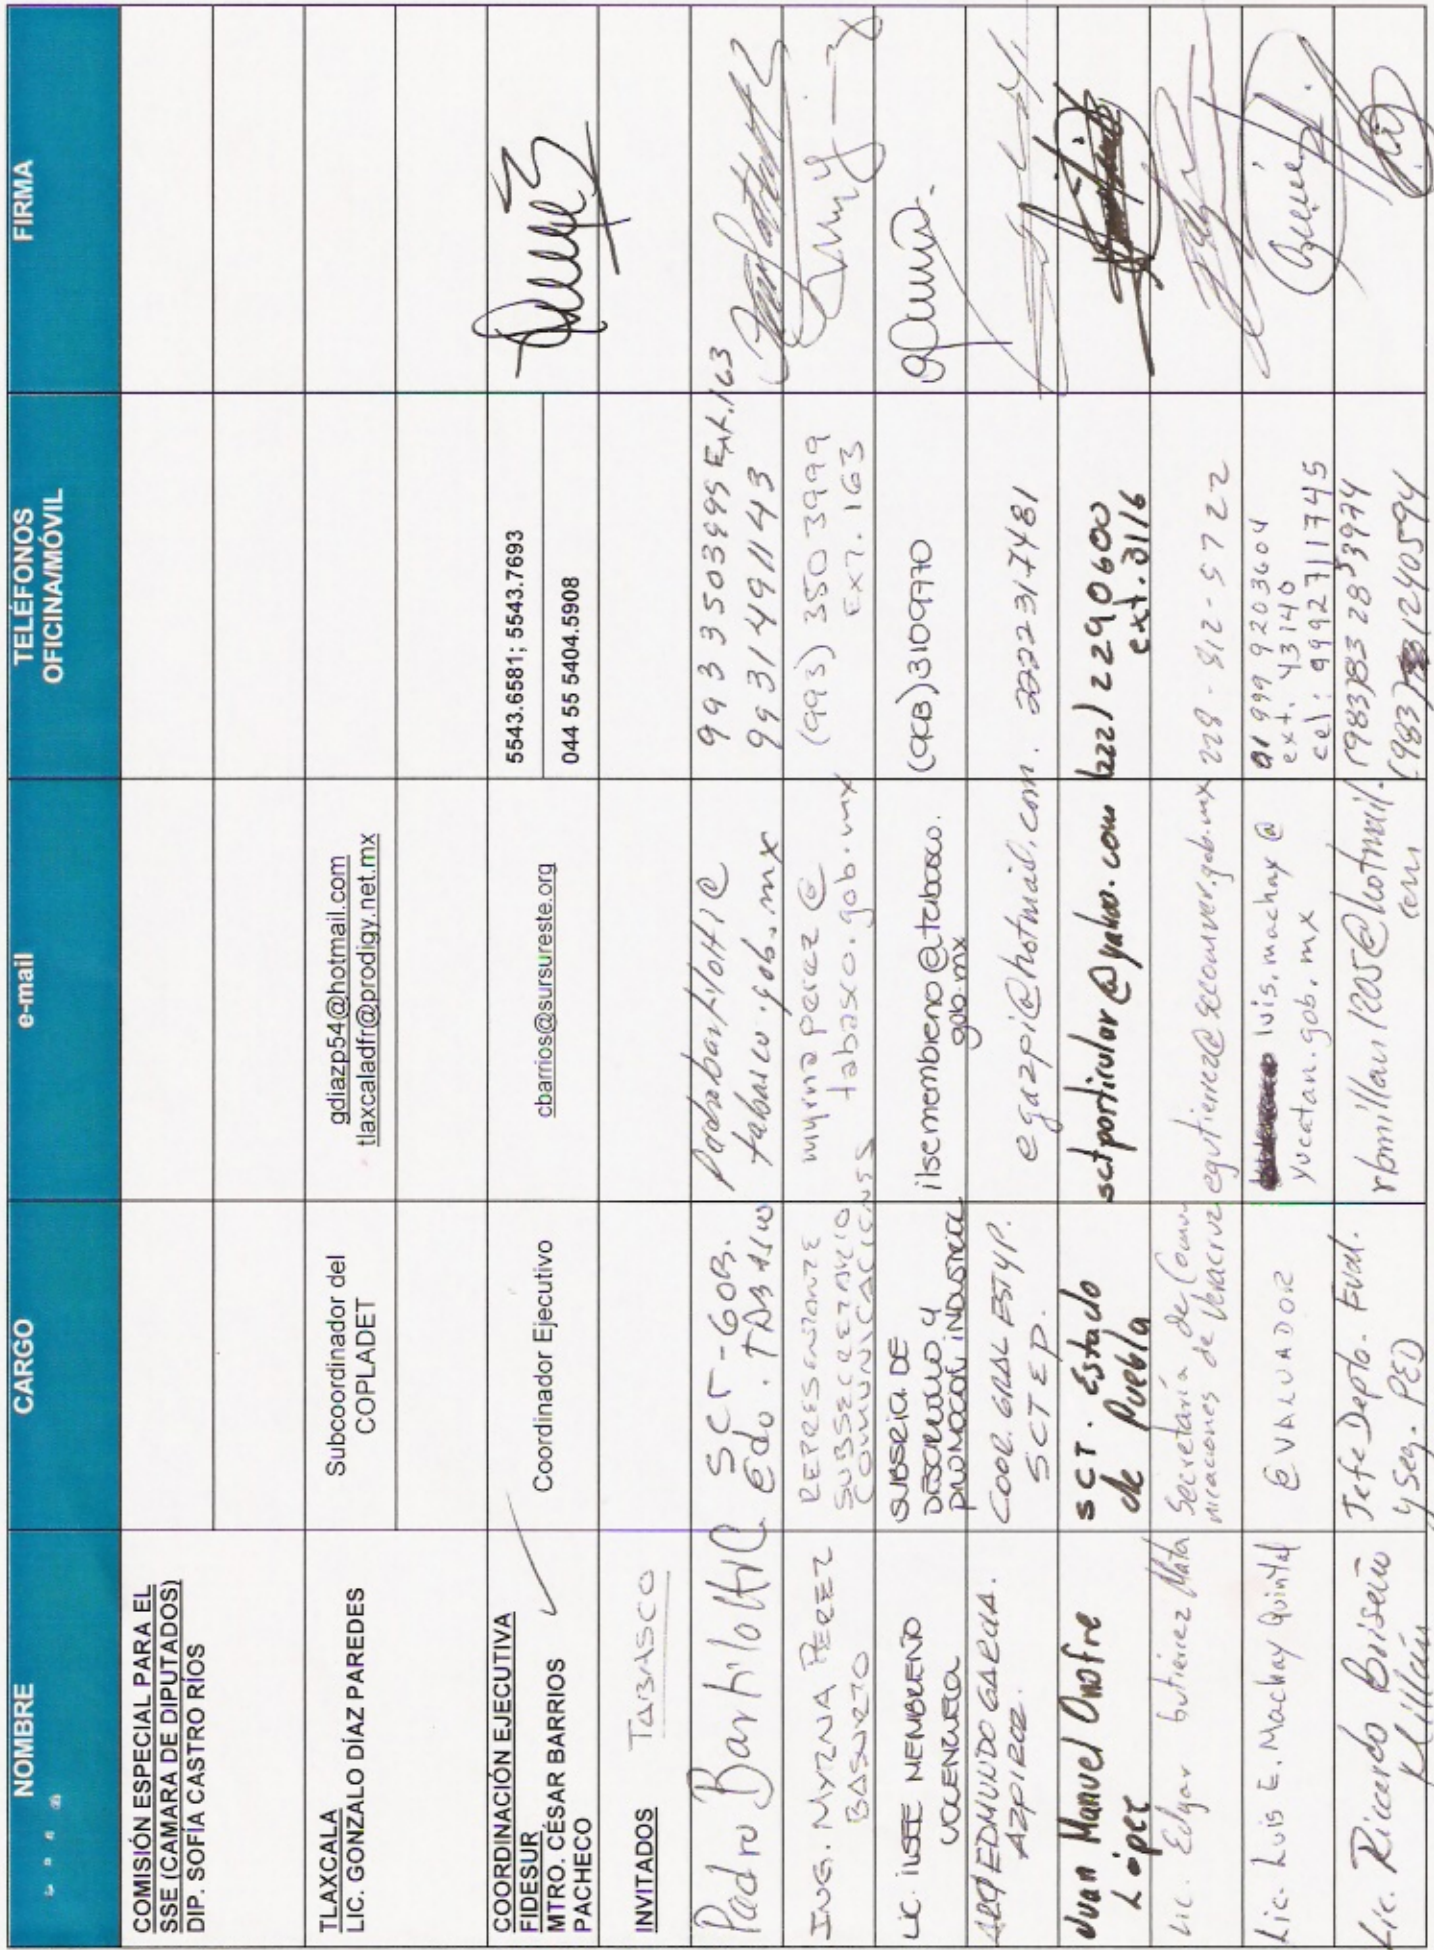 NOMBRE
CARGO
e-mail
TELÉFONOS
OFICINA/MÓVIL
FIRMA
COMISIÓN ESPECIAL PARA EL
SSE (CAMARA DE DIPUTADOS)
DIP. SOFÍA CASTRO RÍOS
TLAXCALA
LIC. GONZALO DÍAZ PAREDES
Subcoordinador del
COPLADET
gdiazp54@hotmail.com
tlaxcaladfr@prodigy.net.mx
COORDINACIÓN EJECUTIVA
FIDESUR
MTRO. CÉSAR BARRIOS
PACHECO
Coordinador Ejecutivo
cbarrios@sursureste.org
5543.6581; 5543.7693
044 55 5404.5908
INVITADOS TABASCO
Pedro Bartilotti C.
SCT-GOB.
Edo. TABASCO
pedrobartilotti@
tabasco.gob.mx
993 3503995 Ext.163
9931491143
ING. MYRNA PEREZ
BASURTO
REPRESENTANTE
SUBSECRETARIO
COMUNICACIONES
myrnaperez@
tabasco.gob.mx
(993) 350 3999
EXT. 163
LIC. ILSEE MEMBREÑO
SUBSRIA. DE
DESARROLLO Y
PROMOCION INDUSTRIAL
ilsemembreno@tabasco.
gob.mx
(993)3109770
ARQ EDMUNDO GARCIA.
AZPIROZ.
COOR. GRAL EST Y P.
SCTEP.
egazpi@hotmail.com.
2222317481
Juan Manuel Onofre
López
SCT. Estado
de Puebla
sctparticular@yahoo.com
(222) 2290600
ext. 3116
Lic. Edgar Gutierrez Mata
Secretaría de Comu-
nicaciones de Veracruz
egutierrez@secomver.gob.mx
228-812-5722
Lic. Luis E. Machay Quintal
EVALUADOR
luis.machay@
yucatan.gob.mx
01 999 9203604
ext. 43140
cel: 9992711745
Lic. Ricardo Briseño
Millán
Jefe Depto. Eval.
y Seg. PED
rbmillan1205@hotmail.
com
(983)83 28 3974
(983) 1240594